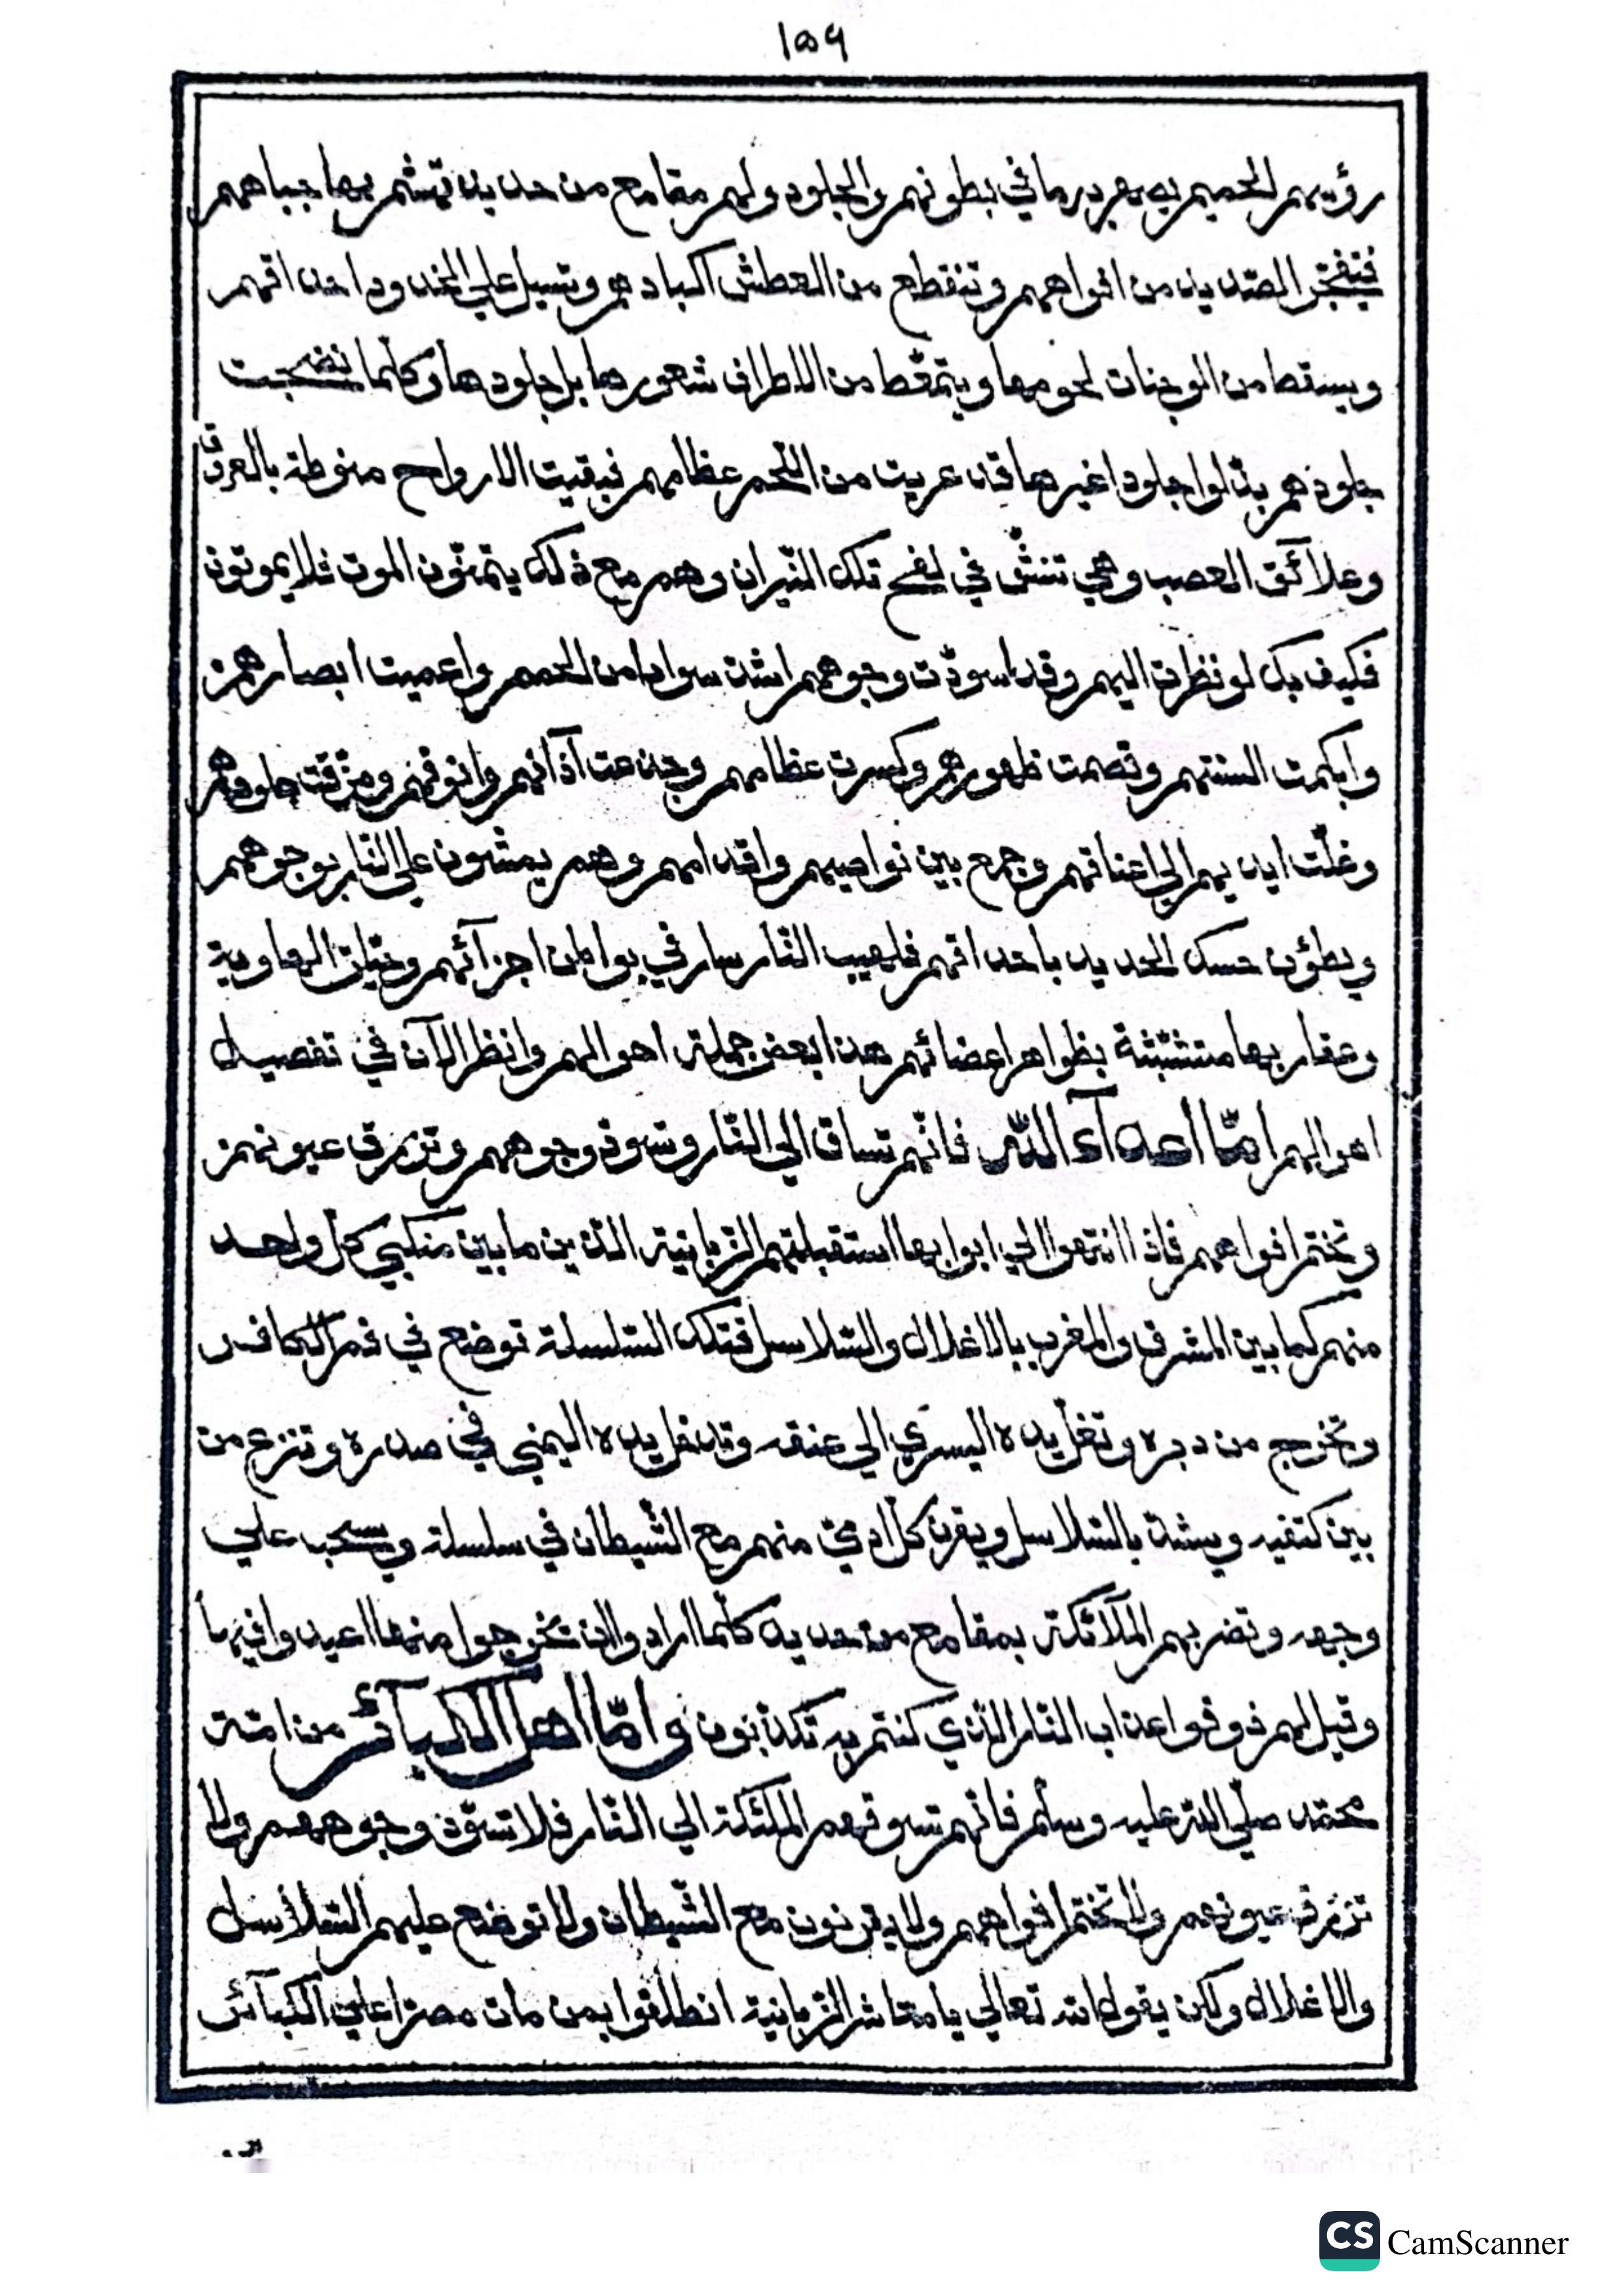 ١٥٩
رؤسهم الحميم يصهر به ما في بطونهم والجلود ولهم مقامع من حديد تهشم بها جباههم
فيتفجّر الصّديد من افواههم وتنقطع من العطش اكبادهم وتسيل علي الخدود احداقهم
ويسقط من الوجنات لحومها ويتمعّط من الاطراف شعورها بل جلودها وكلّما نضجت
جلودهم بدّلوا جلودا غيرها قد عريت من اللّحم عظامهم فبقيت الارواح منوطة بالعروق
وعلائق العصب وهي تنشّ في لفح تلك النّيران وهم مع ذلك يتمنّون الموت فلا يموتون
فكيف بك لو نظرت اليهم وقد اسودّت وجوههم اشد سوادا من الحمم واعميت ابصارهم
وابكمت السنتهم وقصمت ظهورهم وكسرت عظامهم وجدعت آذانهم وانوفهم ومزّقت جلودهم
وغلّت ايديهم الي اعناقهم وجمع بين نواصيهم واقدامهم وهم يمشون علي النّار بوجوههم
ويطؤن حسك الحديد باحداقهم فلهيب النّار سار في بواطن اجزآئهم وحيّات الهاوية
وعقاربها متشبّثة بظواهر اعضائهم هذا بعض جملة احوالهم وانظر الآن في تفصيل
اهوالهم امّا أعدآء اللّه فانّهم تساق الي النّار وتسود وجوههم وتزرق عيونهم
وتختم افواههم فاذا انتهوا الي ابوابها استقبلتهم الزبانية الذين ما بين منكبي كل واحد
منهم كما بين المشرق والمغرب بالاغلال والسّلاسل فتلك السّلسلة توضع في فم الكافر
وتخرج من دبره وتغلّ يده اليسري الي عنقه وتدخل يده اليمني في صدره وتنزع من
بين كتفيه ويشدّ بالسّلاسل ويقرن كلّ ادميّ منهم مع الشّيطان في سلسلة ويسحب علي
وجهه وتضربهم الملآئكة بمقامع من حديد كلّما ارادوا ان يخرجوا منها اعيدوا فيها
وقيل لهم ذوقوا عذاب النّار الّذي كنتم به تكذّبون وامّا اهل الكبآئر من امّة
محمّد صلّي اللّه عليه وسلّم فانّهم تسوقهم الملئكة الي النّار فلا تسوّد وجوههم ولا
تزرق عيونهم ولا تختم افواههم ولا يقرنون مع الشّيطان ولا توضع عليهم السّلاسل
والاغلال ولكن يقول الله تعالي يا معاشر الزبانية انطلقوا بمن مات مصرّا علي الكبآئر
CS CamScanner